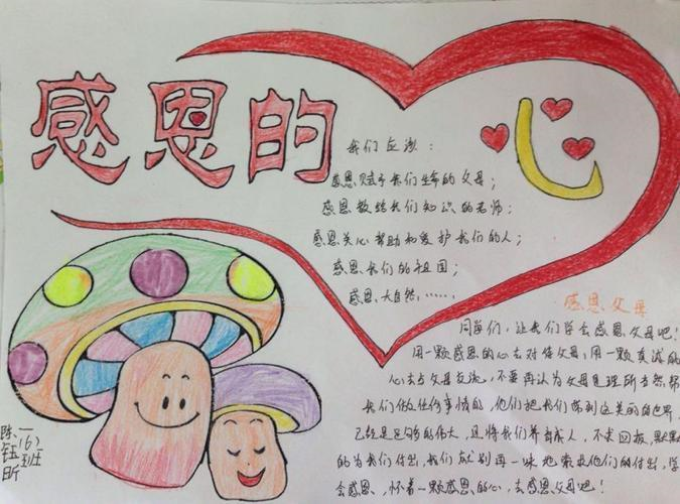 感恩的心
我们应该：
感恩赋予我们生命的父母；
感恩教给我们知识的老师；
感恩关心帮助和爱护我们的人；
感恩我们的祖国；
感恩大自然……
感恩父母
同学们，让我们学会感恩父母吧！
用一颗感恩的心去对待父母，用一颗真诚的
心去与父母交流，不要再认为父母是理所当然帮
我们做任何事情的，他们把我们带到这美丽的世界，
已经是足够的伟大，且将我们养育成人，不求回报，默默
的为我们付出，我们就别再一味地索取他们的付出，学
会感恩，怀着一颗感恩的心，去感恩父母吧！
一(6)班
陈钰昕